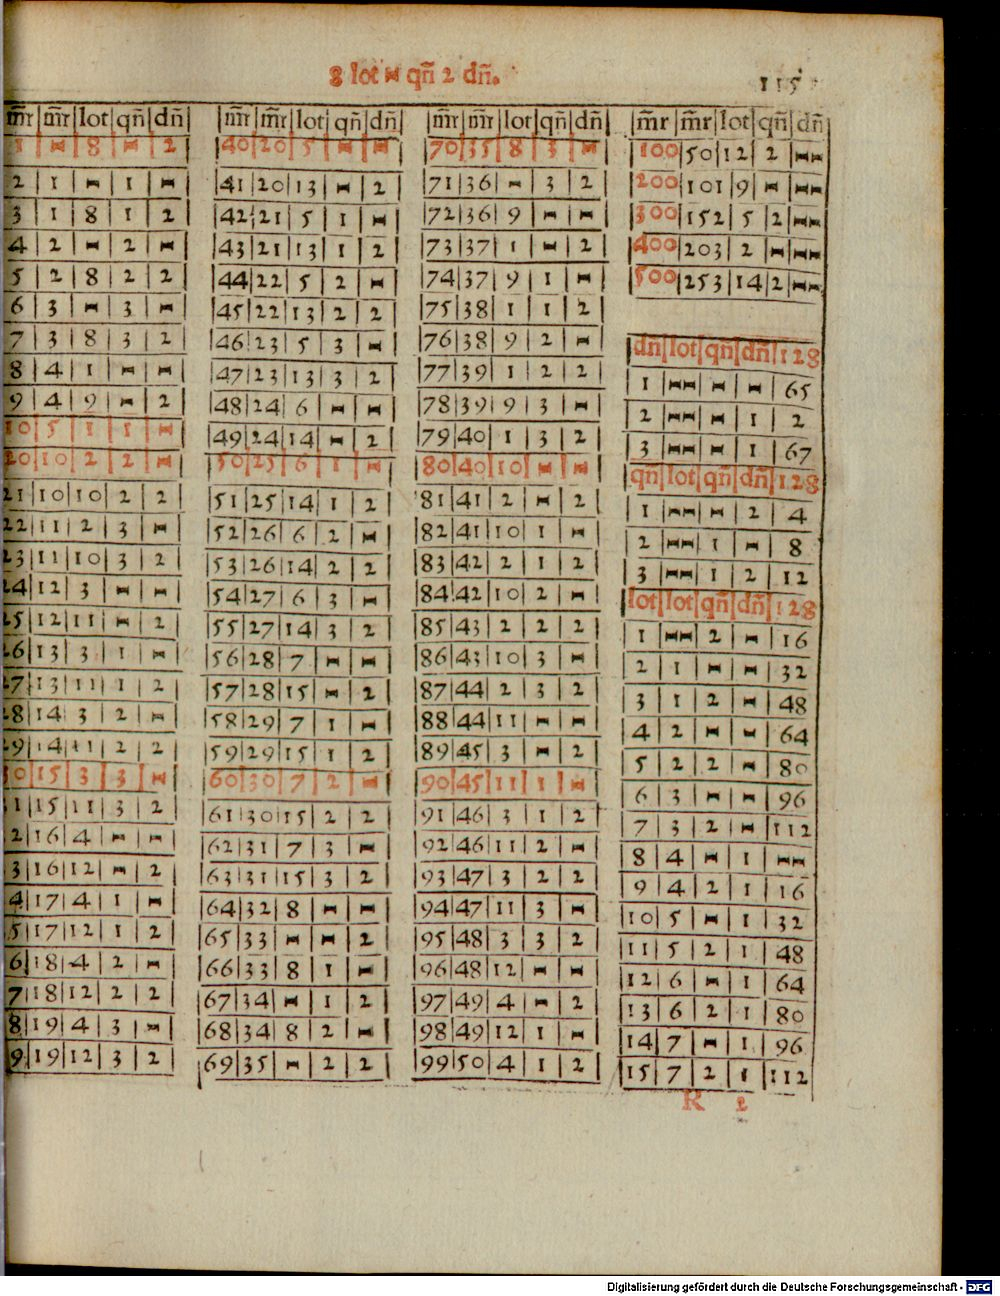 8 lot ⋈ qñ 2 dñ.
115
m̃r|m̃r|lot|qñ|dñ
1|⋈|8|⋈|2
2|1|⋈|1|⋈
3|1|8|1|2
4|2|⋈|2|⋈
5|2|8|2|2
6|3|⋈|3|⋈
7|3|8|3|2
8|4|1|⋈|⋈
9|4|9|⋈|2
10|5|1|1|⋈
20|10|2|2|⋈
21|10|10|2|2
22|11|2|3|⋈
23|11|10|3|2
24|12|3|⋈|⋈
25|12|11|⋈|2
26|13|3|1|⋈
27|13|11|1|2
28|14|3|2|⋈
29|14|11|2|2
30|15|3|3|⋈
31|15|11|3|2
2|16|4|⋈|⋈
3|16|12|⋈|2
4|17|4|1|⋈
5|17|12|1|2
6|18|4|2|⋈
7|18|12|2|2
8|19|4|3|⋈
9|19|12|3|2
m̃r|m̃r|lot|qñ|dñ
40|20|5|⋈|⋈
41|20|13|⋈|2
42|21|5|1|⋈
43|21|13|1|2
44|22|5|2|⋈
45|22|13|2|2
46|23|5|3|⋈
47|23|13|3|2
48|24|6|⋈|⋈
49|24|14|⋈|2
50|25|6|1|⋈
51|25|14|1|2
52|26|6|2|⋈
53|26|14|2|2
54|27|6|3|⋈
55|27|14|3|2
56|28|7|⋈|⋈
57|28|15|⋈|2
58|29|7|1|⋈
59|29|15|1|2
60|30|7|2|⋈
61|30|15|2|2
62|31|7|3|⋈
63|31|15|3|2
64|32|8|⋈|⋈
65|33|⋈|⋈|2
66|33|8|1|⋈
67|34|⋈|1|2
68|34|8|2|⋈
69|35|⋈|2|2
m̃r|m̃r|lot|qñ|dñ
70|35|8|3|⋈
71|36|⋈|3|2
72|36|9|⋈|⋈
73|37|1|⋈|2
74|37|9|1|⋈
75|38|1|1|2
76|38|9|2|⋈
77|39|1|2|2
78|39|9|3|⋈
79|40|1|3|2
80|40|10|⋈|⋈
81|41|2|⋈|2
82|41|10|1|⋈
83|42|2|1|2
84|42|10|2|⋈
85|43|2|2|2
86|43|10|3|⋈
87|44|2|3|2
88|44|11|⋈|⋈
89|45|3|⋈|2
90|45|11|1|⋈
91|46|3|1|2
92|46|11|2|⋈
93|47|3|2|2
94|47|11|3|⋈
95|48|3|3|2
96|48|12|⋈|⋈
97|49|4|⋈|2
98|49|12|1|⋈
99|50|4|1|2
m̃r|m̃r|lot|qñ|dñ
100|50|12|2|⋈
200|101|9|⋈|⋈
300|152|5|2|⋈
400|203|2|⋈|⋈
500|253|14|2|⋈
dñ|lot|qñ|dñ|128
1|⋈|⋈|⋈|65
2|⋈|⋈|1|2
3|⋈|⋈|1|67
qñ|lot|qñ|dñ|128
1|⋈|⋈|2|4
2|⋈|1|⋈|8
3|⋈|1|2|12
lot|lot|qñ|dñ|128
1|⋈|2|⋈|16
2|1|⋈|⋈|32
3|1|2|⋈|48
4|2|⋈|⋈|64
5|2|2|⋈|80
6|3|⋈|⋈|96
7|3|2|⋈|112
8|4|⋈|1|⋈
9|4|2|1|16
10|5|⋈|1|32
11|5|2|1|48
12|6|⋈|1|64
13|6|2|1|80
14|7|⋈|1|96
15|7|2|1|112
R 2
Digitalisierung gefördert durch die Deutsche Forschungsgemeinschaft - DFG